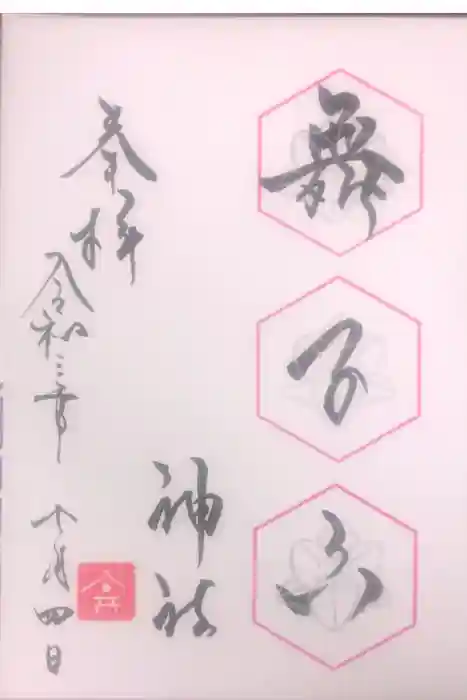 舞子六
神社
奉拝
令和三年 十月四日